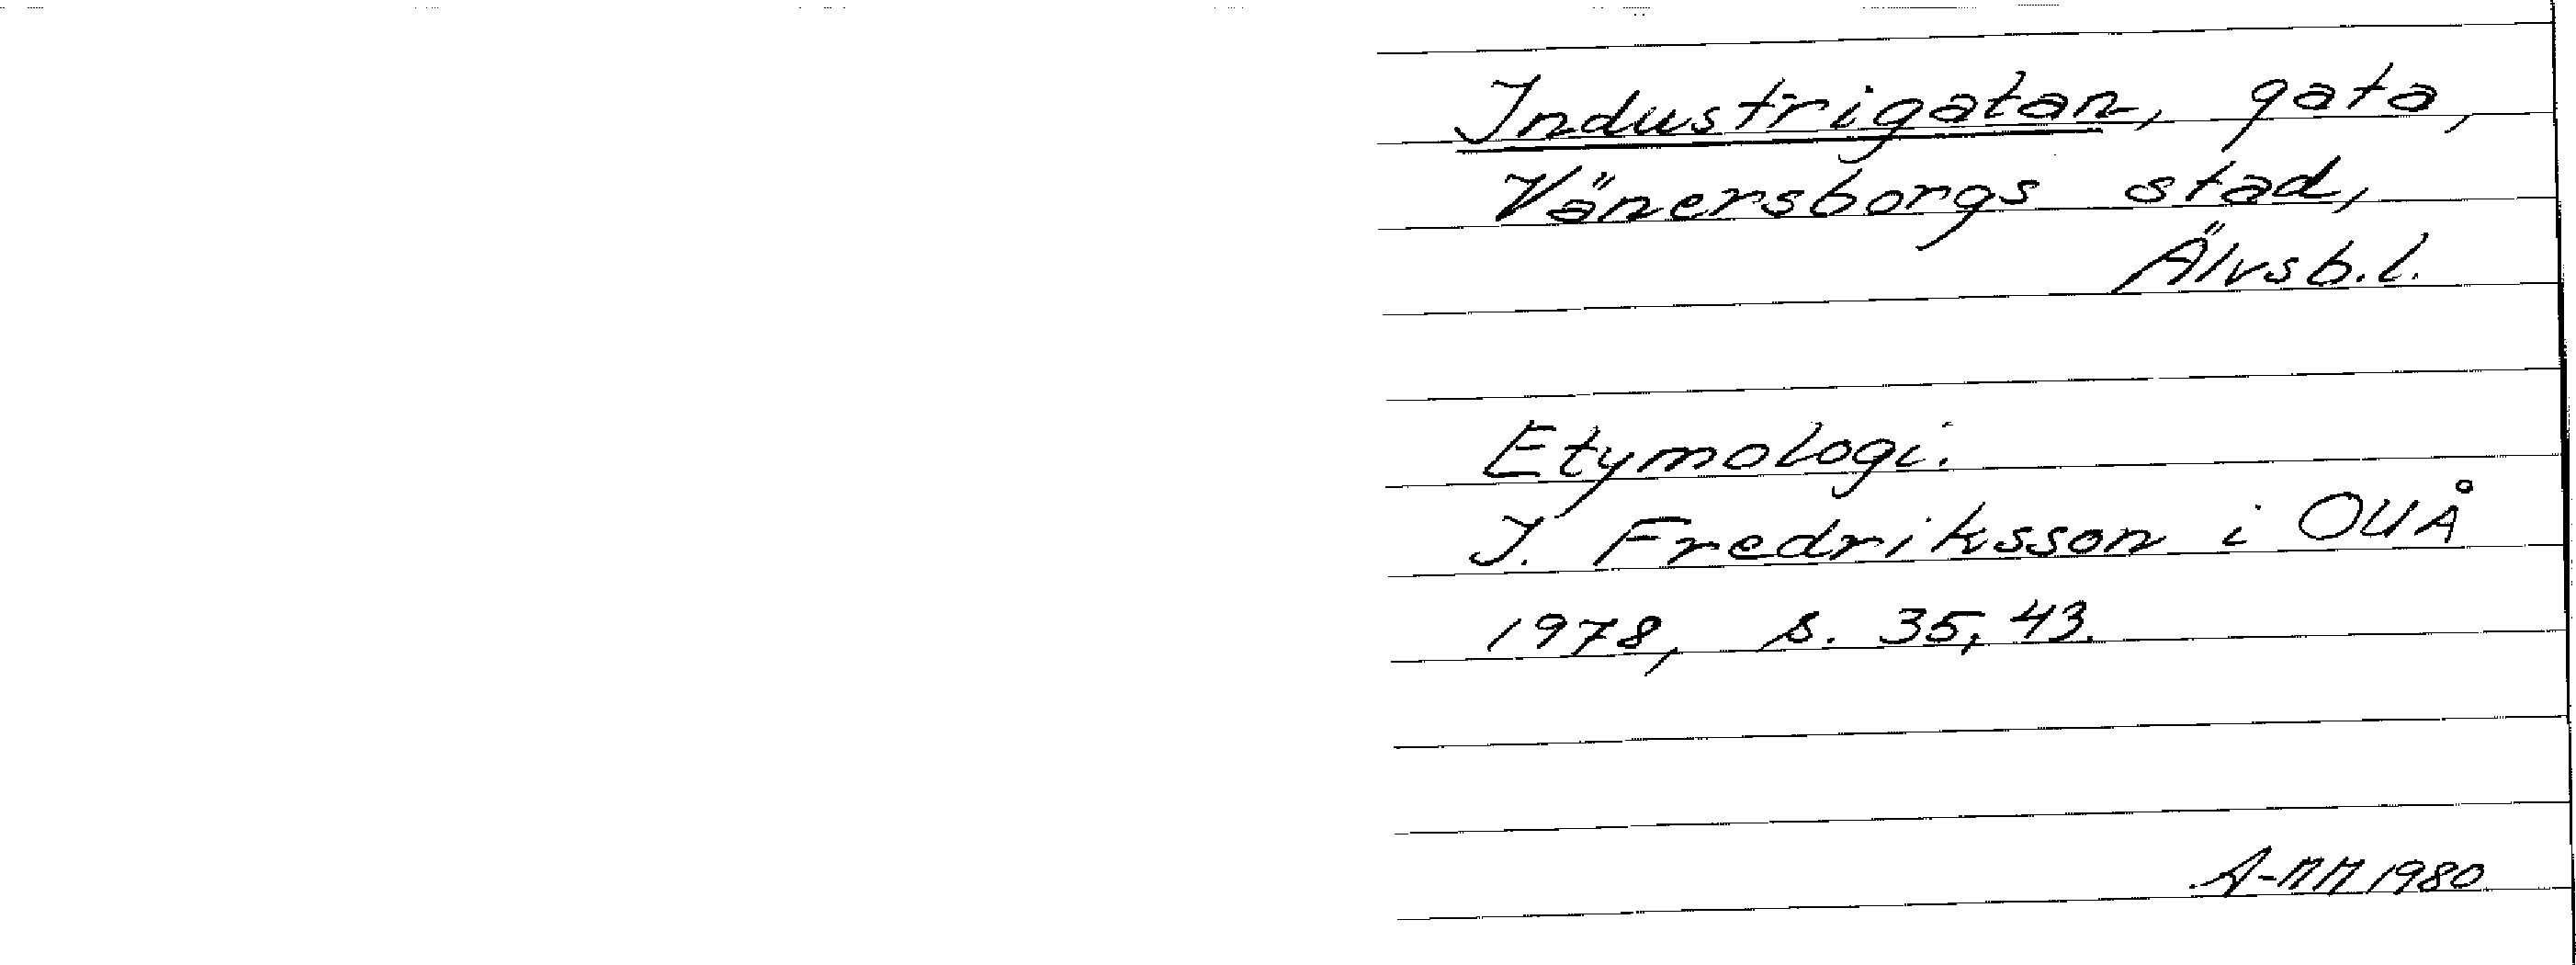 Industrigatan, gata,
Vänersborgs stad,
Älvsb.l.
Etymologi.
I. Fredriksson i OUÅ
1978, s. 35, 43.
A-MM 1980